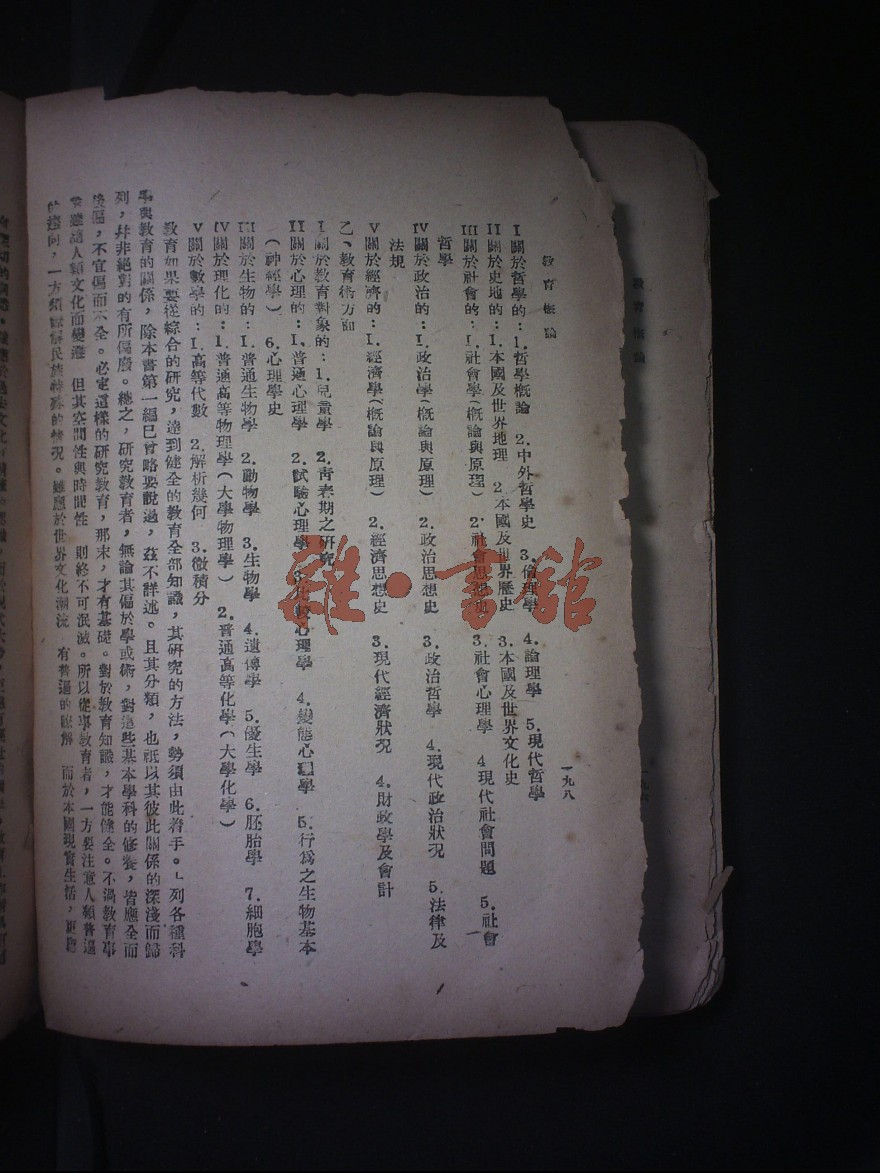 教育概論
一九八
I關於哲學的：1.哲學概論 2.中外哲學史 3.倫理學 4.論理學 5.現代哲學
II關於史地的：1.本國及世界地理 2本國及世界歷史 3.本國及世界文化史
III關於社會的：1.社會學(概論與原理) 2.社會思想 3.社會心理學 4現代社會問題 5.社會
哲學
IV關於政治的：1.政治學(概論與原理) 2.政治思想史 3.政治哲學 4.現代政治狀况 5.法律及
法規
V關於經濟的：1.經濟學(概論與原理) 2.經濟思想史 3.現代經濟狀况 4.財政學及會計
乙、教育術方面
I關於教育對象的：1.兒童學 2.青春期之研究
II關於心理的：1.普通心理學 2.試驗心理學 3比較心理學 4.變態心理學 5.行為之生物基本
(神經學) 6.心理學史
III關於生物的：1.普通生物學 2.動物學 3.生物學 4.遺傳學 5.優生學 6.胚胎學 7.細胞學
IV關於理化的：1.普通高等物理學(大學物理學) 2.普通高等化學(大學化學)
V關於數學的：1.高等代數 2.解析幾何 3.微積分
教育如果要從綜合的研究，達到健全的教育全部知識，其研究的方法，勢須由此着手。上列各種科
學與教育的關係，除本書第一編已曾略要說過，茲不詳述。且其分類，也祇以其彼此關係的深淺而歸
列，幷非絕對的有所偏廢。總之，研究教育者，無論其偏於學或術，對這些基本學科的修養，皆應全而
後偏，不宜偏而不全。必定這樣的研究教育，那末，才有基礎。對於教育知識，才能健全。不過教育事
業雖隨人類文化而變遷 但其空間性與時間性 則終不可泯滅。所以從事教育者，一方要注意人類普遍
的趨向，一方須 民族特殊的情況。雖應於世界文化潮流 有普遍的瞭解 而於本國現實生活，更應
教育概論
雜·書館